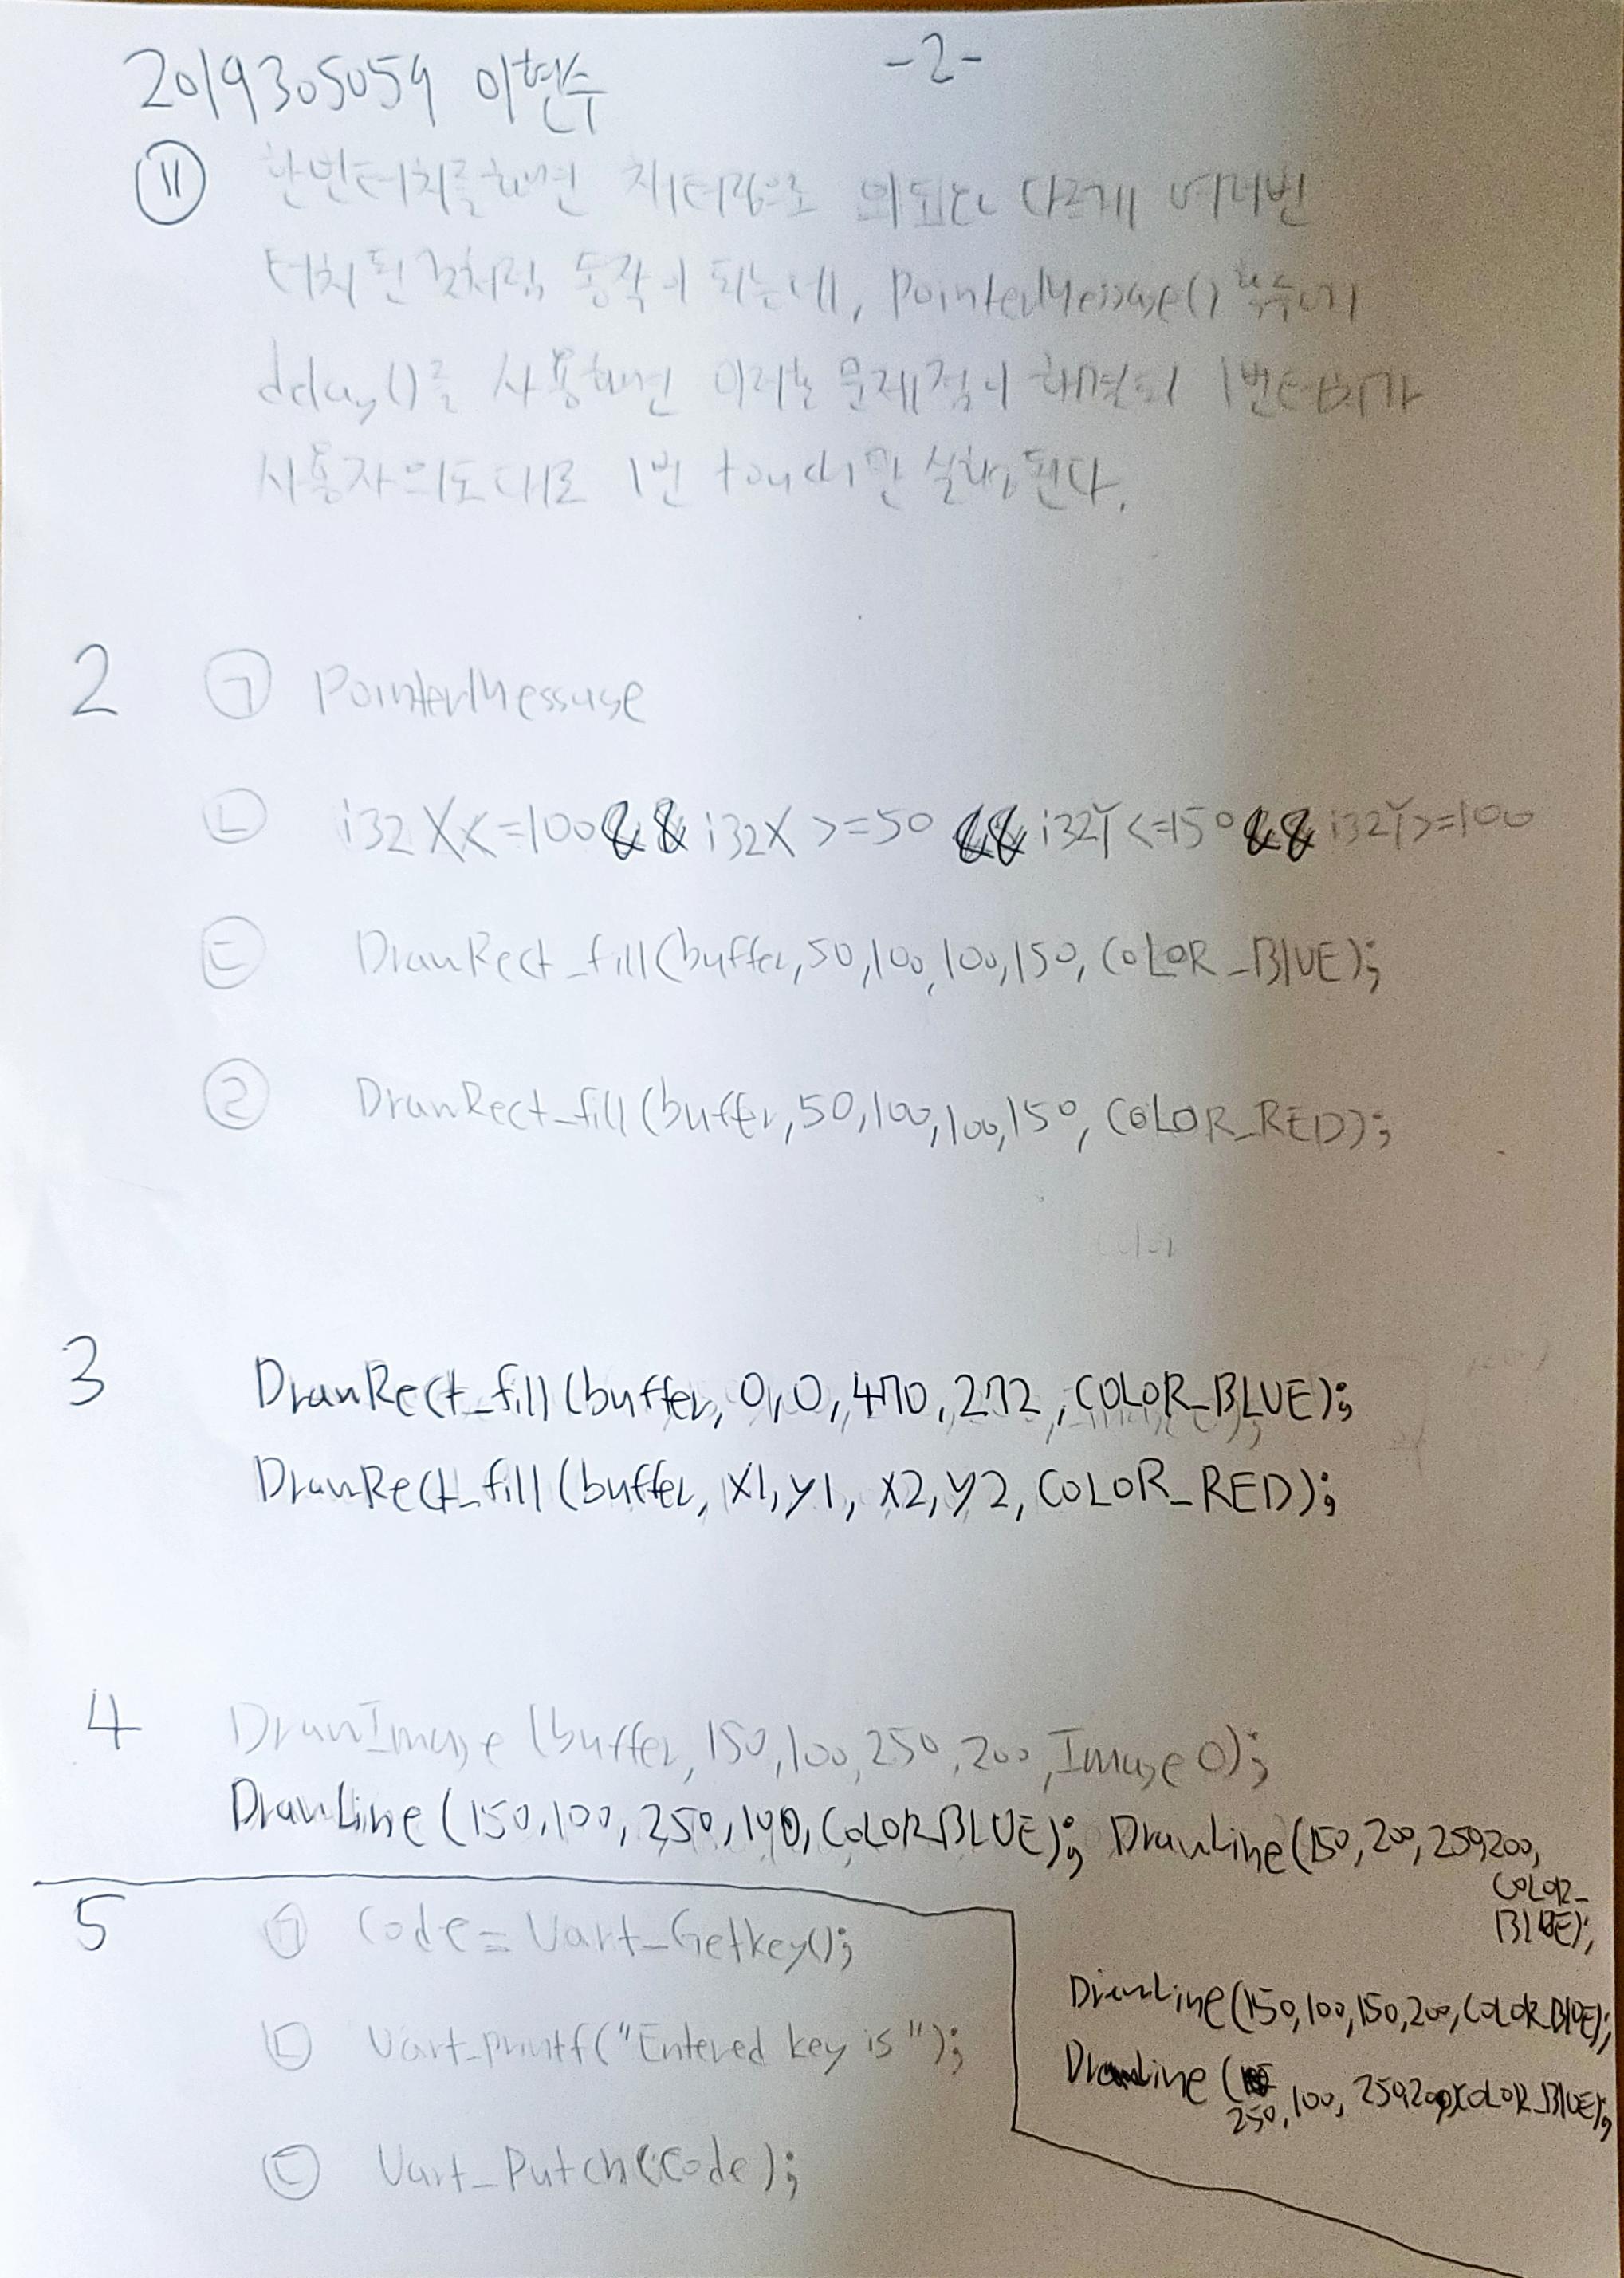 2019305059 이현수 -2-
⑪ 한번터치를하면 채터링으로 의도와 다르게 여러번
터치된것처럼 동작이 되는데, PointerMessage() 함수에
delay()를 사용하면 이러한 문제점이 해결되 1번터치가
사용자의도대로 1번 touch만 실행된다.
2 ㉠ PointerMessage
㉡ i32X<=100&&i32X>=50 && i32Y<=150&& i32Y>=100
㉢ DrawRect_fill(buffer,50,100,100,150, COLOR_BLUE);
㉣ DrawRect_fill(buffer,50,100,100,150, COLOR_RED);
color
3 DrawRect_fill(buffer, 0,0,470,272,COLOR_BLUE);
DrawRect_fill(buffer, x1,y1, x2,y2, COLOR_RED);
4 DrawImage(buffer,150,100,250,200,Image0);
DrawLine(150,100,250,100,COLOR_BLUE); DrawLine(150,200,250,200,
COLOR_
BLUE);
DrawLine(150,100,150,200,COLOR_BLUE);
DrawLine(250,100,250,200,COLOR_BLUE);
5 ㉠ Code=Uart_Getkey();
㉡ Uart_Printf("Entered key is");
㉢ Uart_Putch(Code);